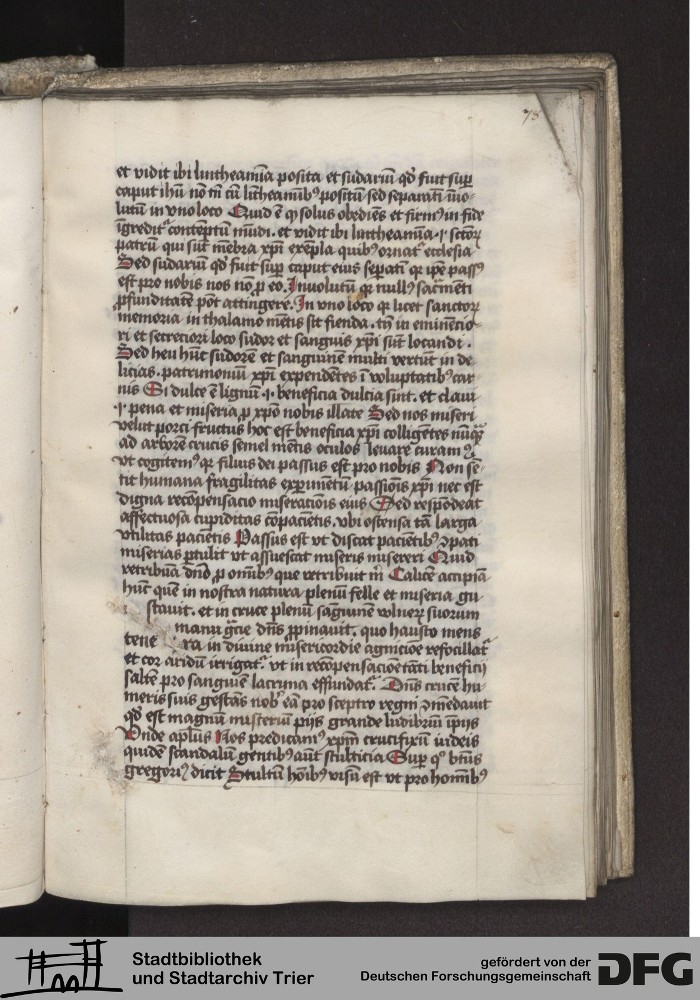 73
et vidit ibi lintheamīa posita et sudariū qd̄ fuit sup̄
caput ihū nō tn̄ cū līthēamībꝰ positum sed separatī īuo-
lutū in vno loco Quid ē qͥ solus obediēs et firmꝰ in fide
īgredit᷑ contēptum mūdi. et vidit ibi lintheamīa .i. sctōꝝ
patrū qui sūt mēbra xp̄i exēpla quibꝰ ornat᷑ ecclesia
Sed sudariū qd̄ fuit sup̄ caput eius sepatī qꝛ ip̄e passꝰ
est pro nobis nos nō p̱ eo. Inuolutū qꝛ nullꝰ sacm̄ēti
ꝓfunditatē pōt attingere. In vno loco qꝛ licet sanctoꝝ
memoria in thalamo mētis sit fienda. tn̄ in eminēcio-
ri et secreciori loco sudor et sanguis xp̄i sūt locandi.
Sed heu hūc sudorē et sanguinēm multi vertūt in de-
licias. patrimoniū xp̄i expendētes ī voluptatibꝰ car
nis Si dulce ē lignū .i. beneficia dulcia sint. et claui
.i. pena et miseria ꝓ xp̄o nobis illate Sed nos miseri
velut porci fructus hoc est beneficia xp̄i colligētes nūqᷓ
ad arborē crucis semel mētis oculos leuare curamꝰ
vt cogitemꝰ qꝛ filius dei passus est pro nobis Non sē-
tit humana fragilitas exp̱imētū passiōis xp̄i nec est
digna recōpensacio miserationis eius Sed respōdeat
affectuosa cupiditas cōpaciētis. vbi ostensa tā larga
vtilitas pacientis Passus est vt discat pacientibꝰ ꝯpati
miserias p̱tulit vt assuescat miseris misereri Quid
retribuā dn̄o ꝓ omībꝰ que retribuit m̄ Calicē accipiā
hūc quē in nostra natura plenū felle et miseria gu
stauit. et in cruce plenū sāguinē vulneꝝ suorum
manu gr̄cie dn̄s ꝓpinauit. quo hausto mens
tene ra in diuine misericordie agnicioē refocillat᷑
et cor aridū irrigat᷑. vt in recōpensacioē tāti beneficij
saltē pro sanguiē lacrima effundat᷑. Dn̄s crucē hu-
meris suis gestās nob̄ eā pro sceptro regni ꝯmēdauit
qd̄ est magnū misteriū piis grande ludibriū īpiis
Vnde apl̄us Nos predicamꝰ xp̄m crucifixū iudeis
quidē scandalū gentibꝰ aūt stulticia Sup̄ qͦ btūs
gregoriꝰ dicit Stultū hoībꝰ visū est vt pro homībꝰ
Stadtbibliothek
und Stadtarchiv Trier
gefördert von der
Deutschen Forschungsgemeinschaft
DFG